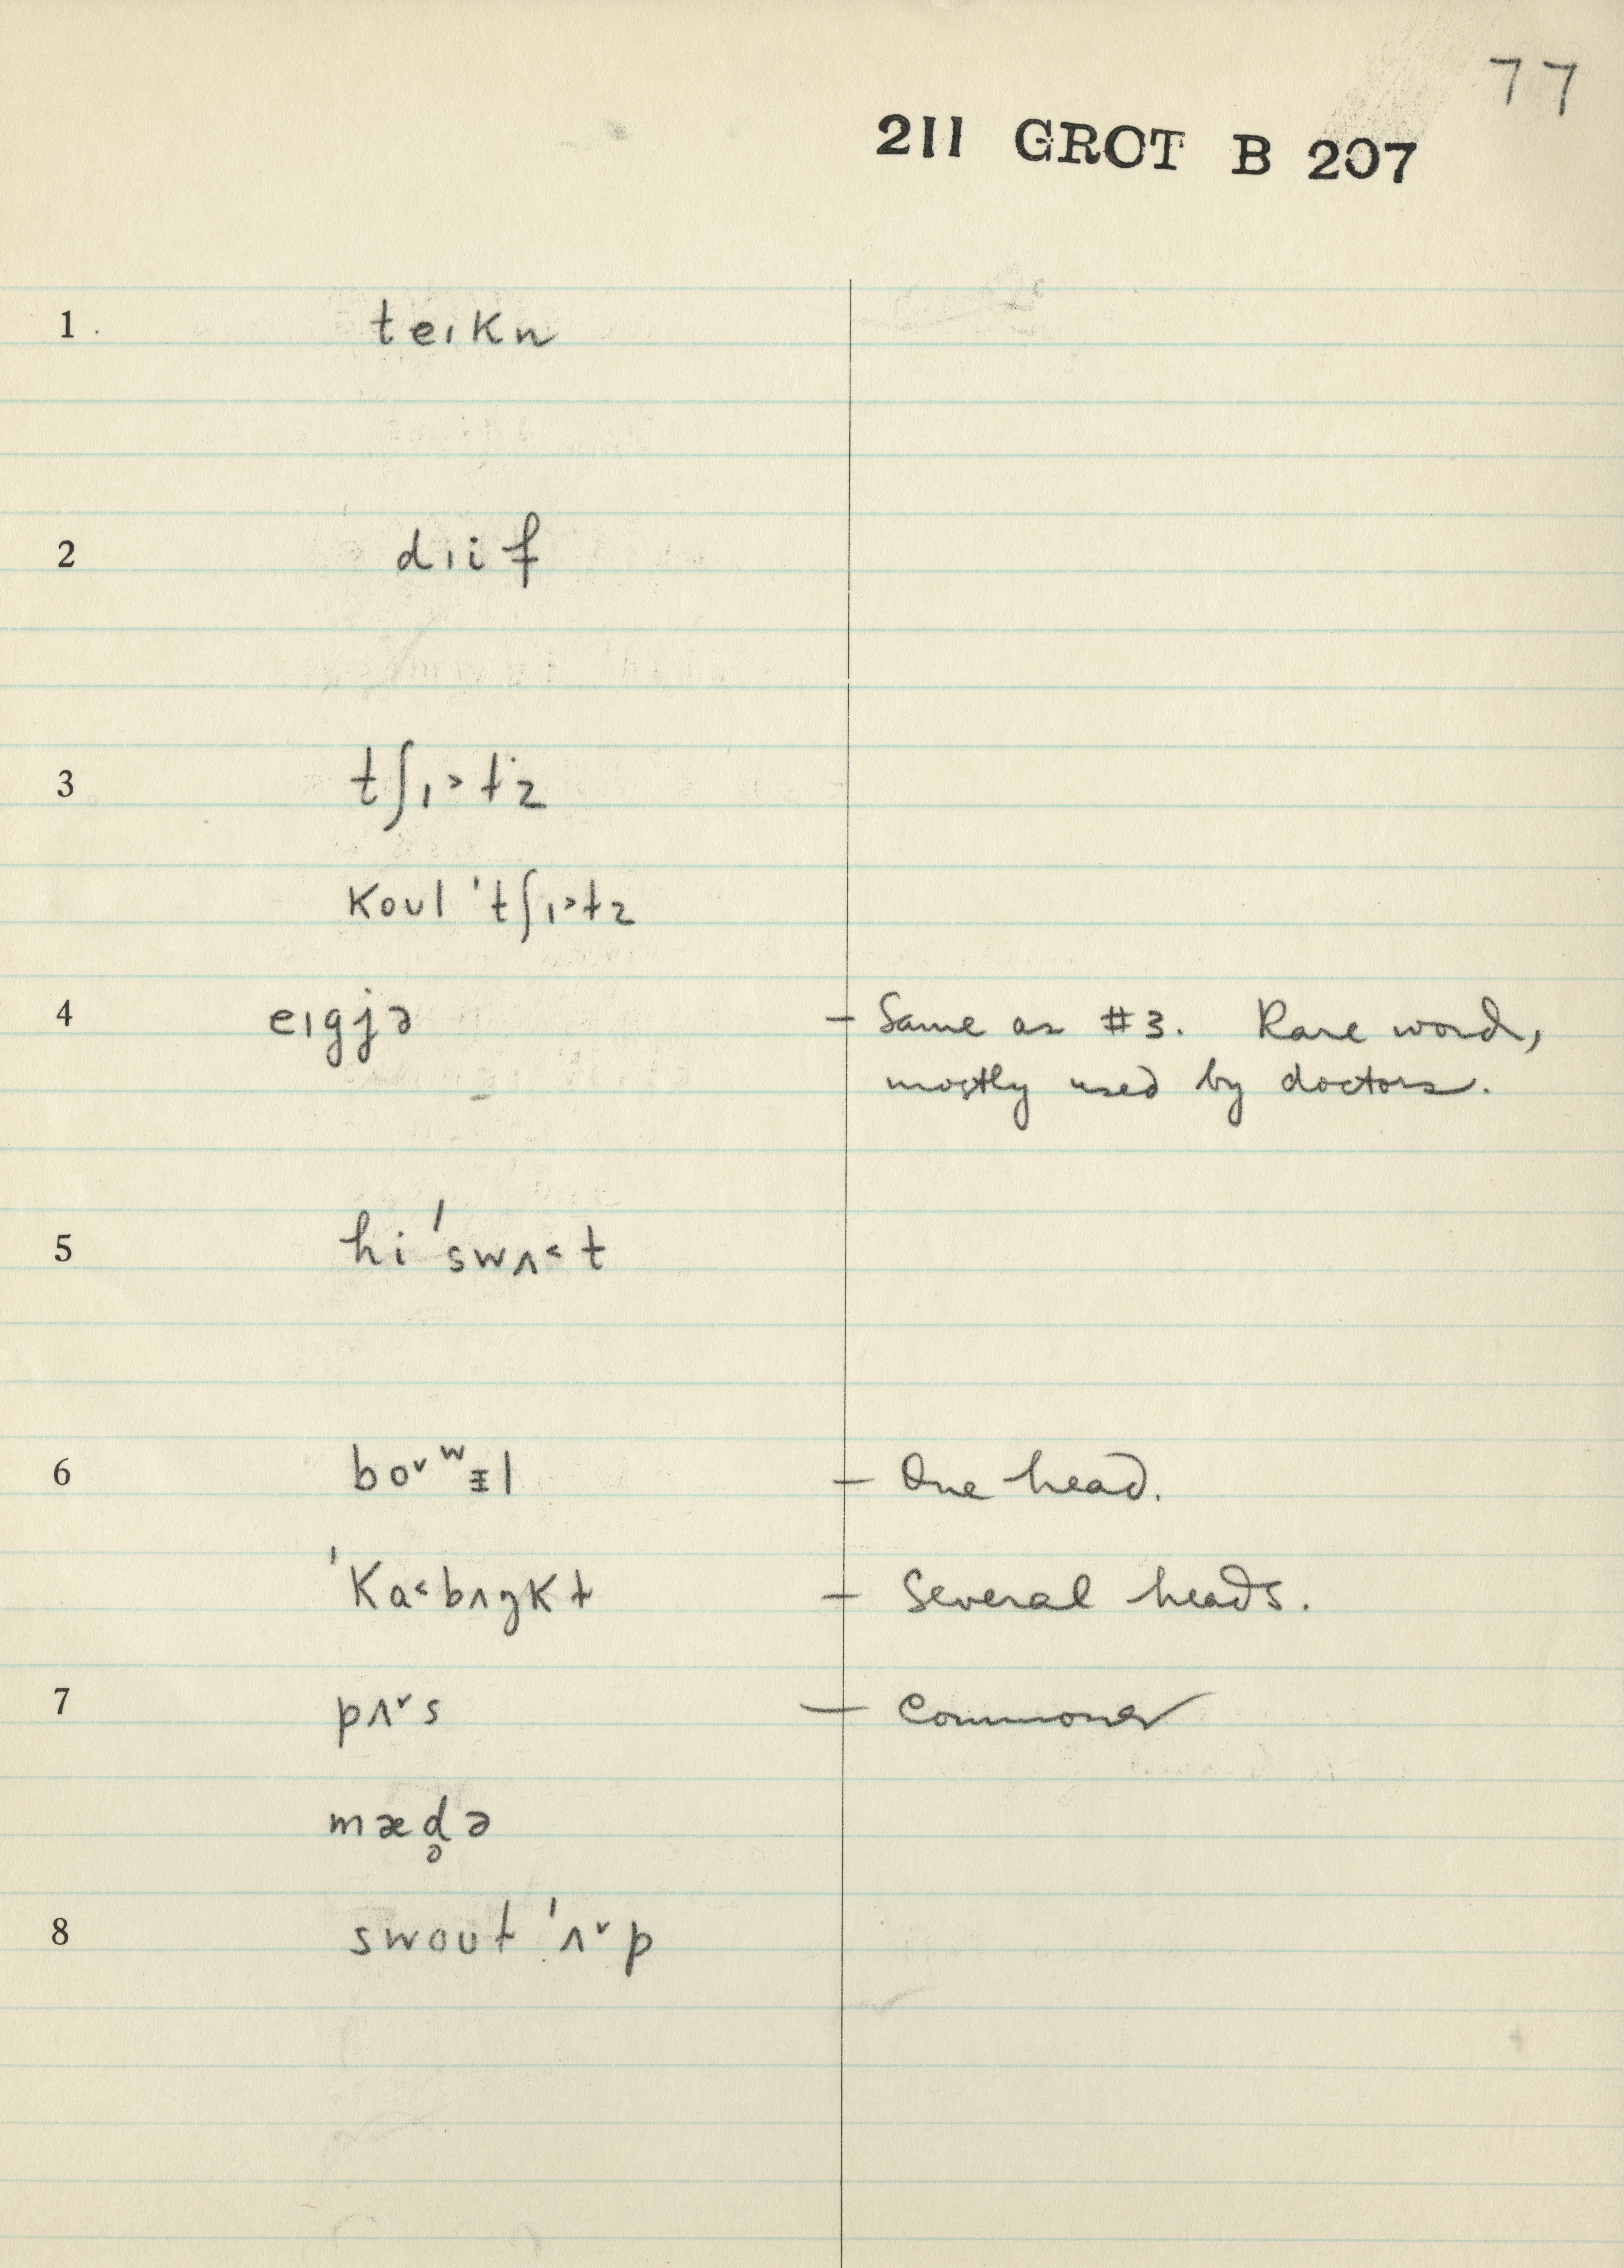 77
211 GROT B 207
1 teɪkn
2 dɪif
3 tʃɪ˃tz
koul 'tʃɪ˃tz
4 eɪgjə – Same as #3. Rare word,
mostly used by doctors.
5 hi 'swʌ˂t
6 boˇʷᵻl – One head.
'ka˂bʌŋkt – Several heads.
7 pʌˇs – Commoner
mæd̥ə
8 swout 'ʌˇp